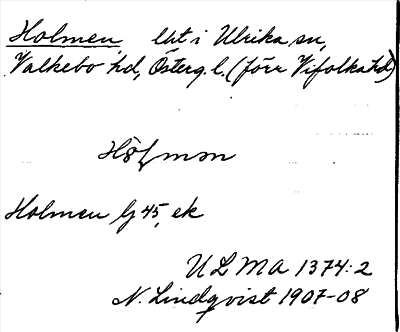 Holmen, lht i Ulrika sn,
Valkebo hd, Österg. l. (förr Vifolka hd)
Holmen lj 45, ek
ULMA 1374:2
N. Lindqvist 1907-08